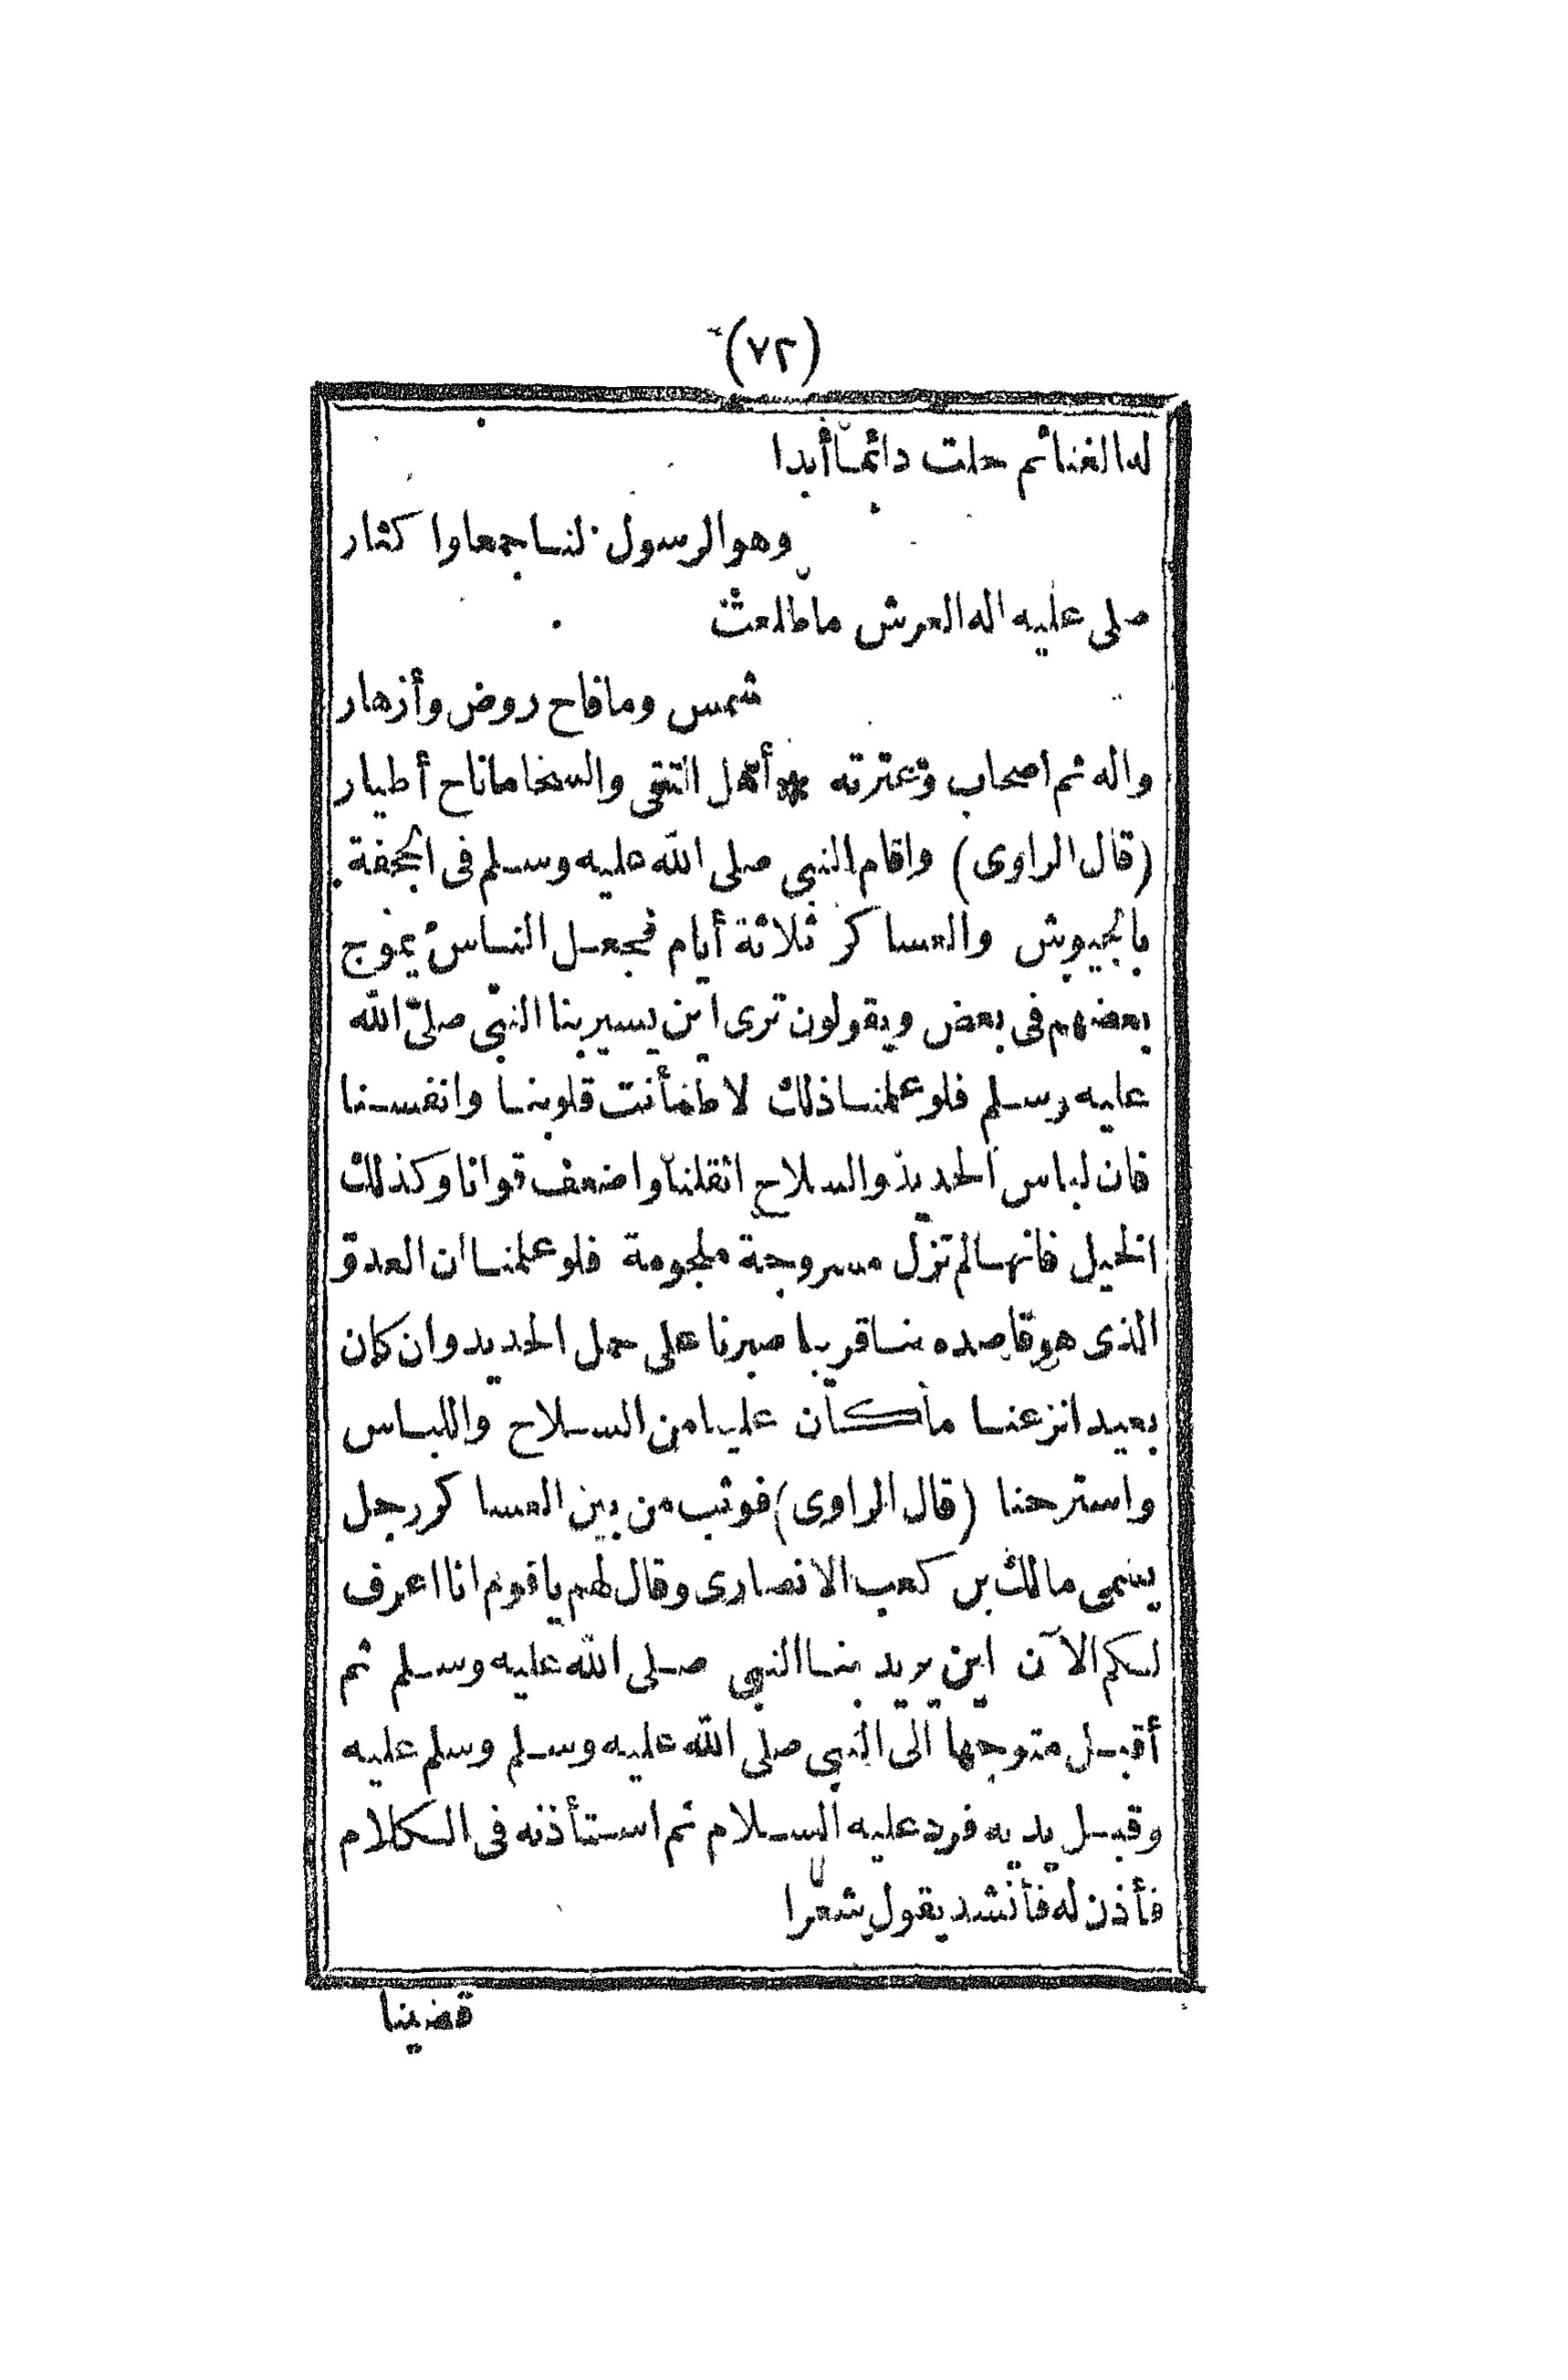 (٧٢)
له الغنائم حلت دائما أبدا
وهو الرسول لنا جمعا وا كثار
صلى عليه اله العرش ما طلعت
شمس وما فاح روض وأزهار
واله ثم اصحاب وعترته * أهل التقى والسخا ما ناح أطيار
(قال الراوى) واقام النبي صلى الله عليه وسلم فى الجحفة
بالجيوش والعساكر ثلاثة أيام فجعل الناس يموج
بعضهم فى بعض ويقولون ترى اين يسير بنا النبي صلى الله
عليه وسلم فلو علمنا ذلك لاطمأنت قلوبنا وانفسنا
فان لباس الحديد والسلاح اثقلنا واضعف قوانا وكذلك
الخيل فانها لم تزل مسروجة ملجومة فلو علمنا ان العدو
الذى هو قاصده منا قريبا صبرنا على حمل الحديد وان كان
بعيدا نزعنا ما كان علينا من السلاح واللباس
واسترحنا (قال الراوى) فوثب من بين العساكر رجل
يسمى مالك بن كعب الانصارى وقال لهم ياقوم انا اعرف
لكم الآن اين يريد بنا النبي صلى الله عليه وسلم ثم
أقبل متوجها الى النبي صلى الله عليه وسلم وسلم عليه
وقبل يديه فرد عليه السلام ثم استأذنه فى الكلام
فأذن له فأنشد يقول شعرا
قضينا